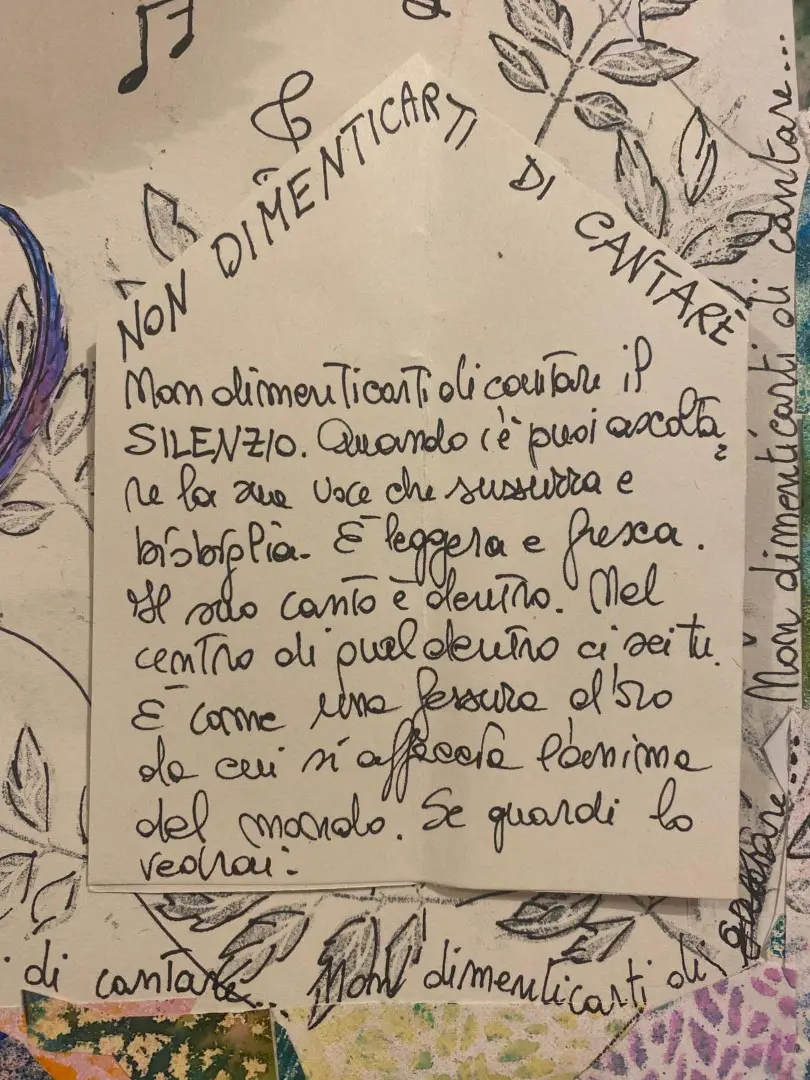 NON DIMENTICARTI DI CANTARE
Non dimenticarti di cantare il
SILENZIO. Quando c'è puoi ascolta
re la sua voce che sussurra e
bisbiglia. È leggera e fresca.
Il suo canto è dentro. Nel
centro di quel dentro ci sei tu.
È come una fessura d'oro
da cui si affaccia l'anima
del mondo. Se guardi lo
vedrai.
Non dimenticarti di cantare...
di cantare... Non dimenticarti di